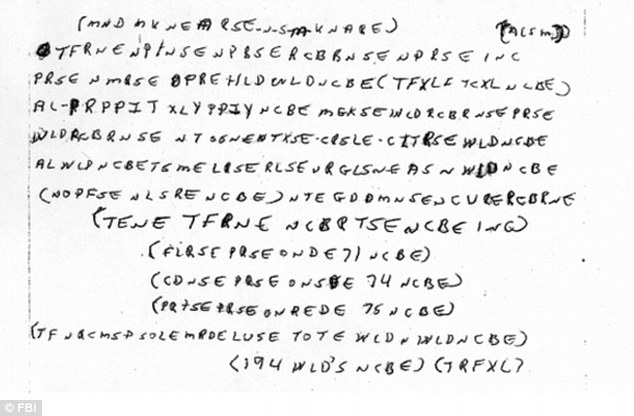 (MND MKNEARSE-N-S-M-KNARE) (ACSM)
TFRNENPINSENPBSERCBRNSENPRSEINC
PRSENMRSEOPREHLDWLDNCBE(TFXLFTCXLNCBE)
AL-PRPPIT XLYPPIY NCBE MGKSEWLDRCBRNSEPRSE
WLDRCBRNSE NTSGNENTXSE-CRSLE-CITRSEWLDNCBE
ALWLDNCBETSMELRSERLSEURGLSNEASNWLDNCBE
(NOPFSENLSRENCBE)NTEGDDMNSENCURERCBRNE
(TENE TFRNE NCBRTSENCBEING)
(FLRSEPRSEONDE71NCBE)
(CDNSEPRSEONSDE74NCBE)
(PRTSEPRSEONREDE75NCBE)
(TFNRCMSPSOLEMRDELUSETOTEWLDNWLDNCBE)
(194WLD'SNCBE)(TRFXL)
© FBI